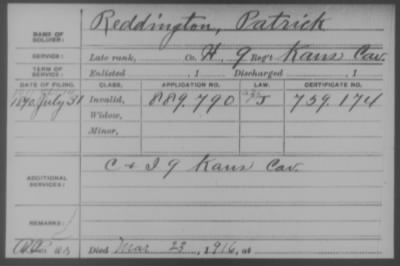 Reddington, Patrick
NAME OF SOLDIER:
SERVICE: Late rank, Co. H, 9 Reg't Kans Cav.
TERM OF SERVICE: Enlisted , 1 Discharged , 1
DATE OF FILING. CLASS. APPLICATION NO. LAW. CERTIFICATE NO.
1890, July 31 Invalid, 889.790 J 759.174
Widow,
Minor,
C & I 9 Kans Cav.
ADDITIONAL SERVICES:
REMARKS:
Died Mar 23, 1916, at